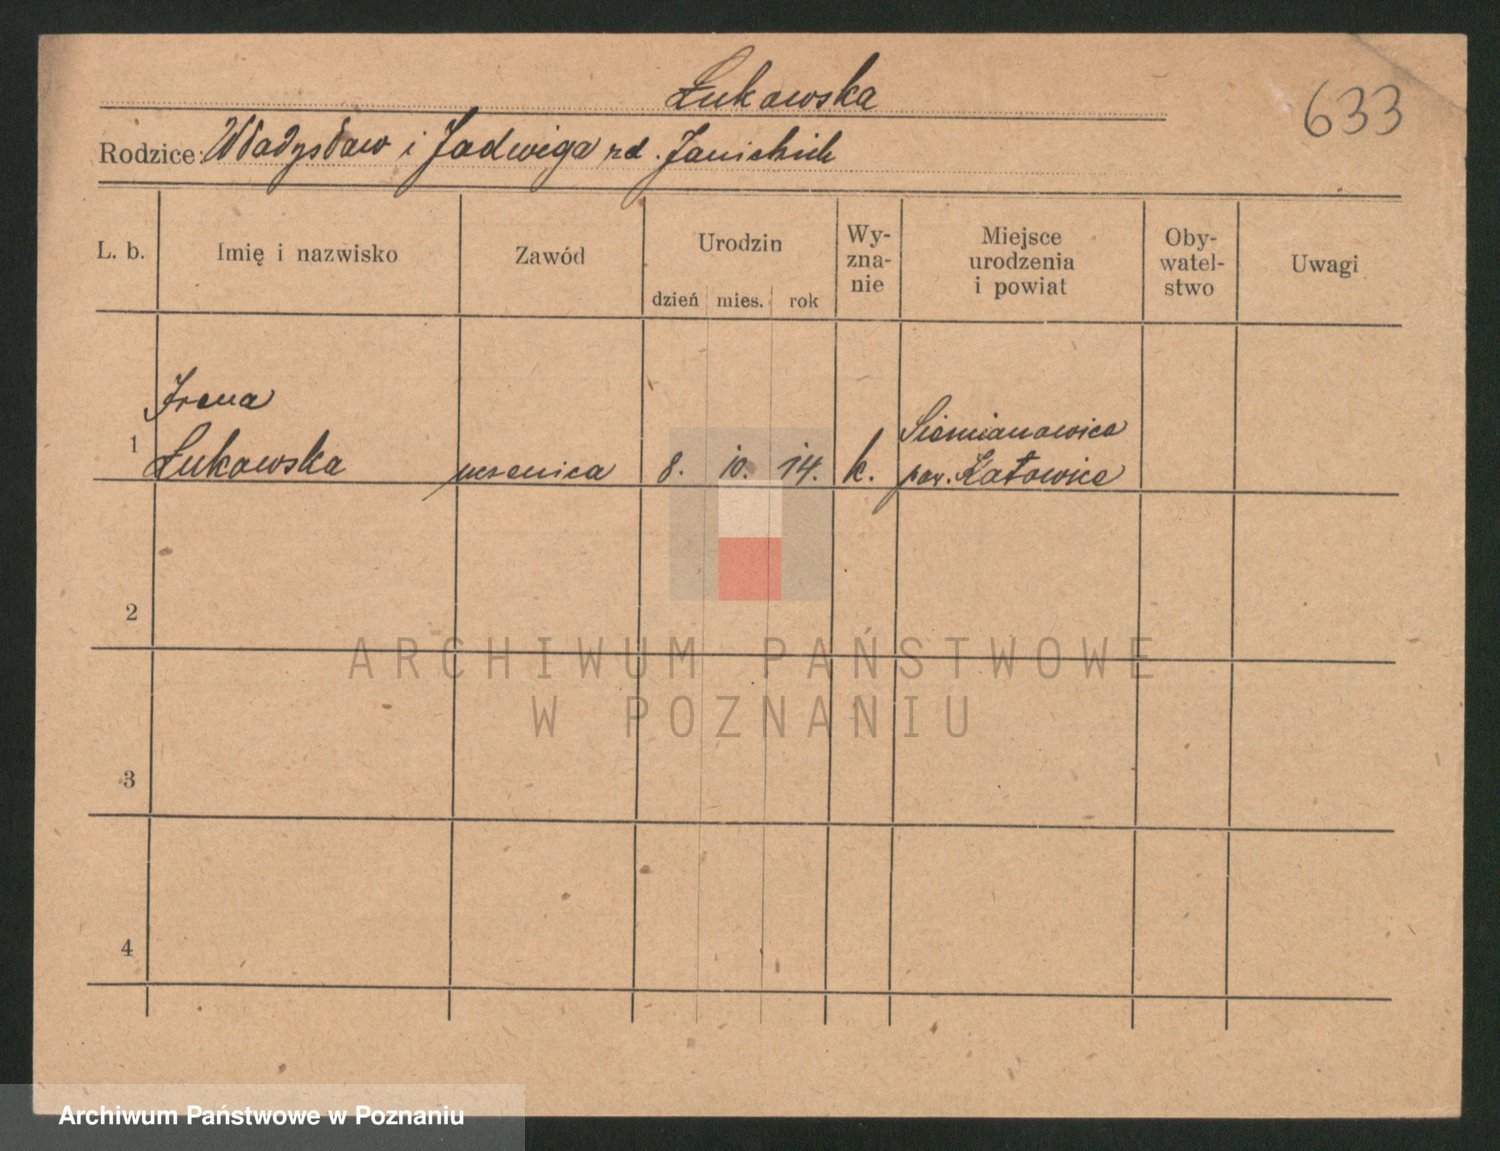 Łukowska
633
Rodzice: Władysław i Jadwiga zd. Janickich
L. b. Imię i nazwisko Zawód Urodzin dzień mies. rok Wy-zna-nie Miejsce urodzenia i powiat Oby-watel-stwo Uwagi
Irena Siemianowice
1 Łukowska uczenica 8. 10. 14. k. pow. Katowice
2
ARCHIWUM PAŃSTWOWE
W POZNANIU
3
4
Archiwum Państwowe w Poznaniu